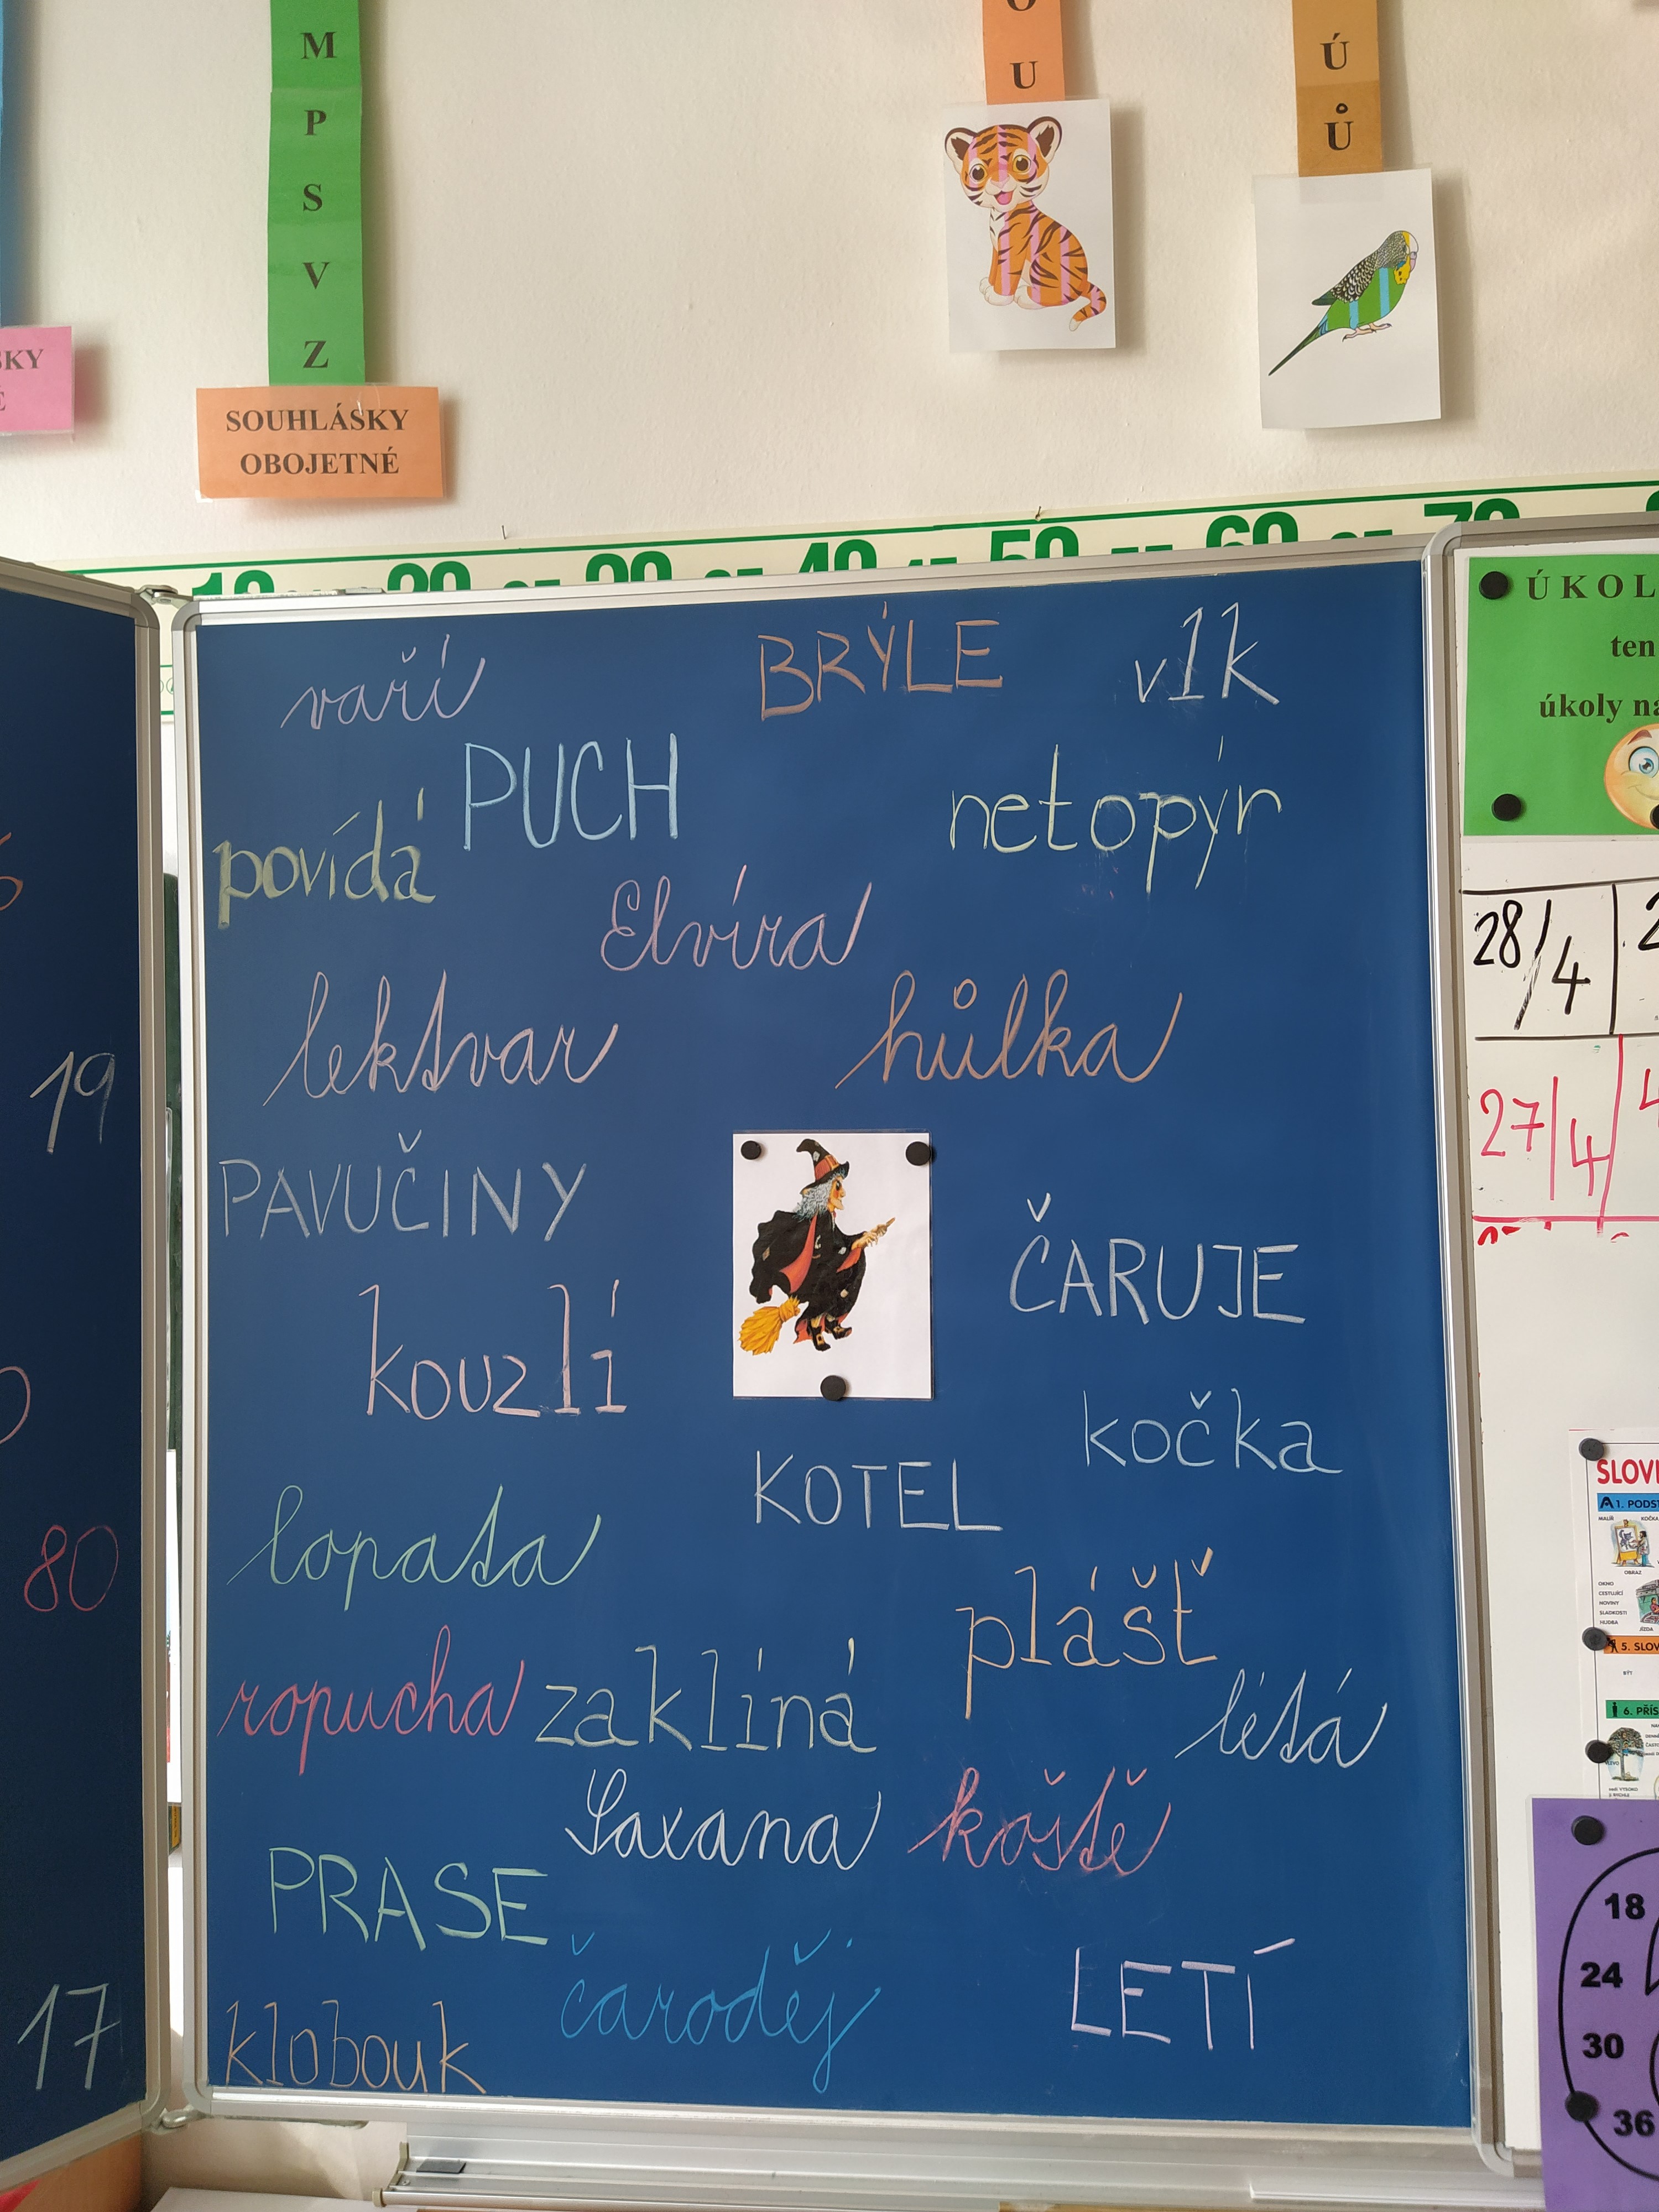 M
P
S
V
Z
SOUHLÁSKY
OBOJETNÉ
U
Ú
Ů
10 20 30 40 50 60 70
vaří BRÝLE vlk
PUCH netopýr
povídá
Elvíra
lektvar hůlka
PAVUČINY
ČARUJE
kouzlí
kočka
KOTEL
lopata
plášť
ropucha zaklíná létá
Saxana koště
PRASE
čaroděj LETÍ
klobouk
19
80
17
ÚKOL
ten
úkoly na
28/4
27/4
SLOV
1. PODST
MALÍŘ KOČKA
OBRAZ
OKNO
CESTUJÍCÍ
NOVINY
SLADKOSTI
HUDBA
JÍZDA
5. SLOV
BÝT
6. PŘÍS
18
24
30
36